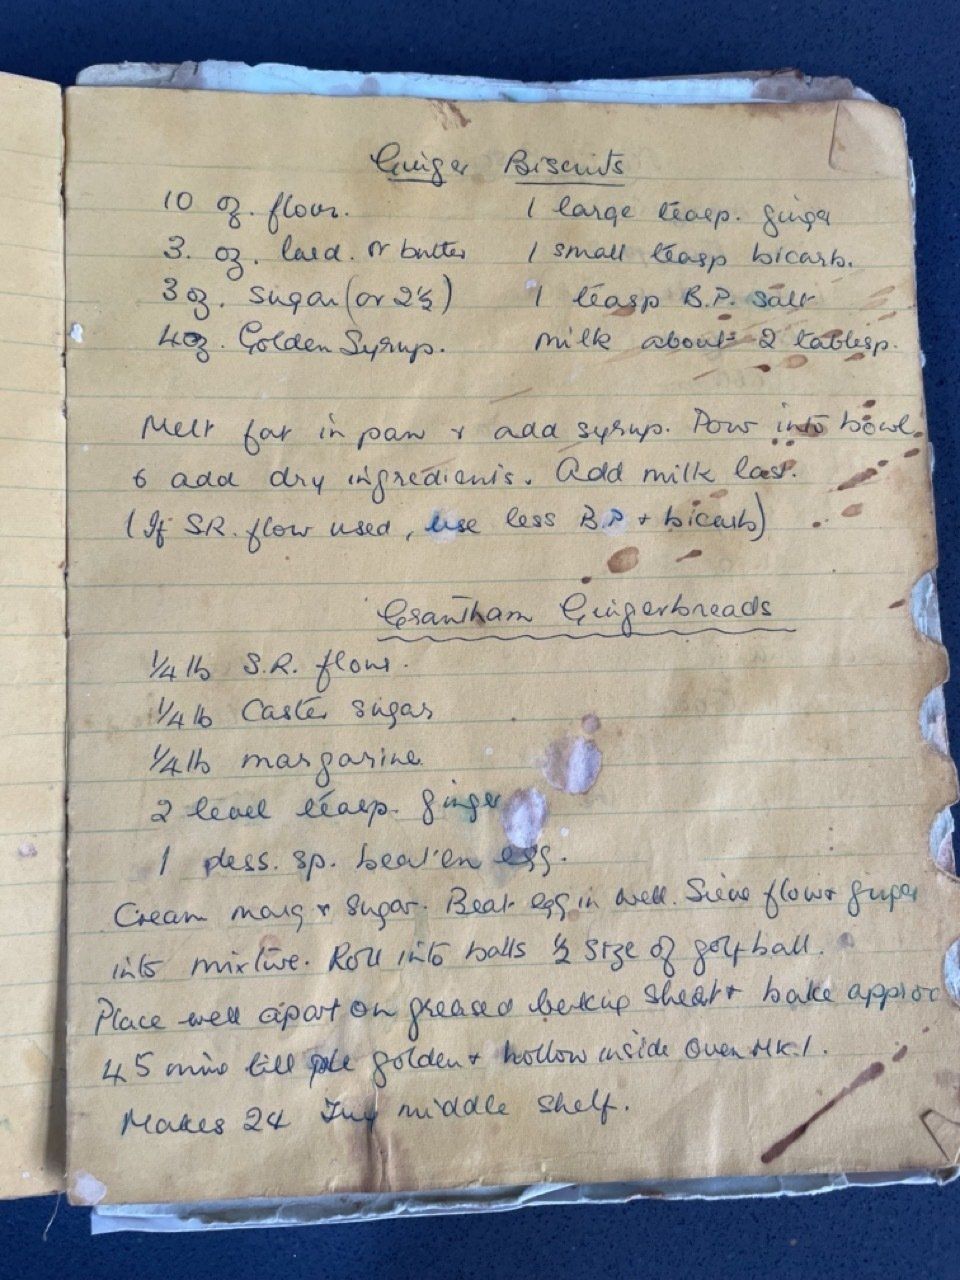 Ginger Biscuits
10 oz. flour. 1 large teasp. ginger
3. oz. lard. or butter 1 small teasp bicarb.
3 oz. sugar (or 2½) 1 teasp B.P. salt
4oz. Golden Syrup. milk about 2 tablesp.
Melt fat in pan & add syrup. Pour into bowl
& add dry ingredients. Add milk last.
(If S.R. flour used, use less B.P + bicarb)
Grantham Gingerbreads
1/4 lb S.R. flour.
1/4 lb Caster sugar
1/4 lb margarine
2 level teasp. ginger
1 dess. sp. beaten egg.
Cream marg & sugar. Beat egg in well. Sieve flour & ginger
into mixture. Roll into balls ½ size of golf ball.
Place well apart on greased baking sheet & bake approx
45 mins till pale golden & hollow inside Oven Mk.1.
Makes 24 middle shelf.